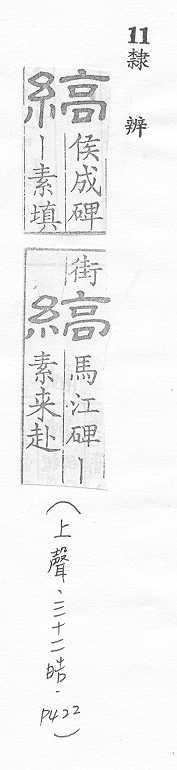 11隸辨
縞
侯成碑
｜素填
街
縞
馬江碑｜
素来赴
(上聲、三十二皓.P422)